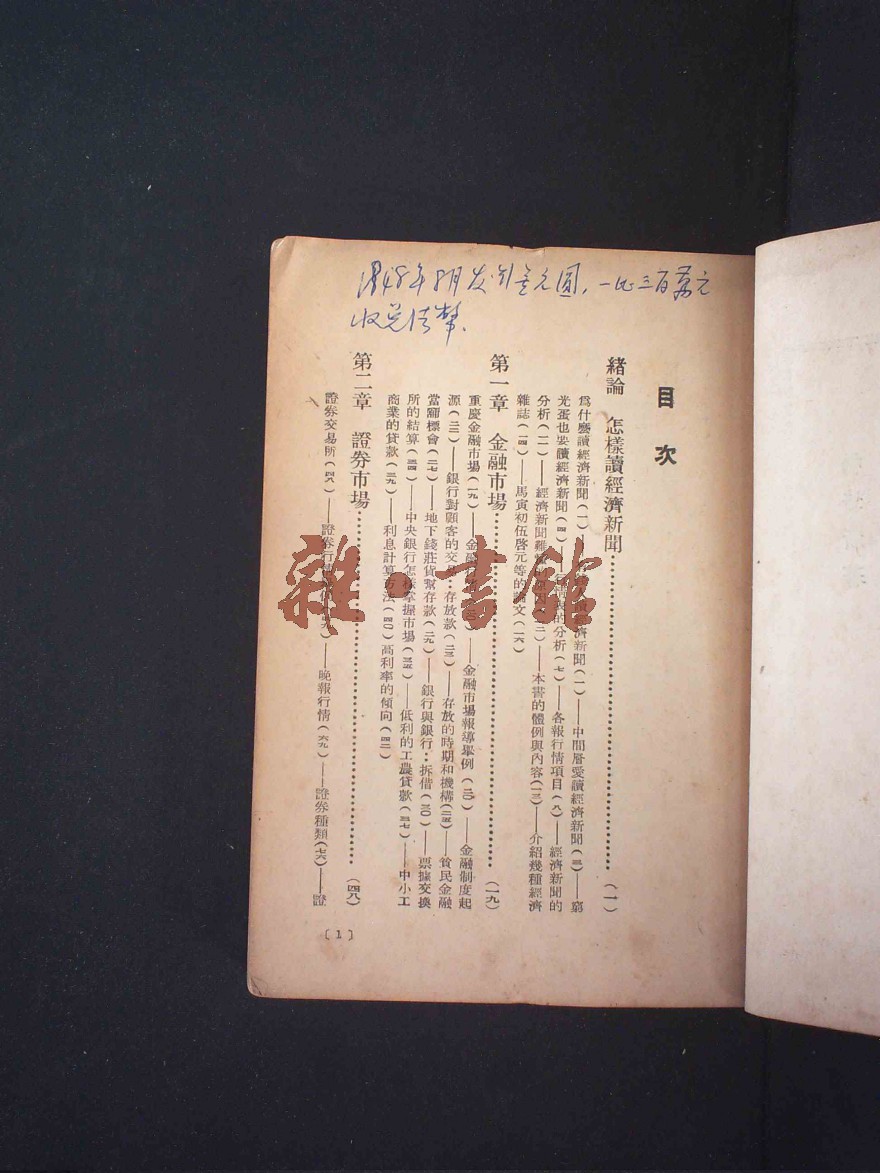 1948年8月发行金元圆，一比三百萬元
收兑法幣.
目次
緒論　怎樣讀經濟新聞……(一)
爲什麽讀經濟新聞(一)——讀經濟新聞(一)——中間層愛讀經濟新聞(三)——窮
光蛋也要讀經濟新聞(四)——的分析(七)——各報行情項目(八)——經濟新聞的
分析(一一)——經濟新聞難(一二)——本書的體例與內容(一三)——介紹幾種經濟
雜誌(一四)——馬寅初伍啓元等的論文(一六)
第一章　金融市場……(一九)
重慶金融市場(一九)——金融(二〇)——金融市場報導舉例(二〇)——金融制度起
源(二二)——銀行對顧客的交易：存放款(二三)——存放的時期和機構(二五)——貧民金融
當舖標會(二七)——地下錢莊貨幣存款(二九)——銀行與銀行：拆借(三〇)——票據交換
所的結算(三四)——中央銀行怎樣掌握市場(三五)——低利的工農貸款(三七)——中小工
商業的貸款(三九)——利息計算方法(四〇)高利率的傾向(四二)
第二章　證券市場……(四八)
證券交易所(四八)——證券行情——晚報行情(六九)——證券種類(七六)——證
〔1〕
雜·書館